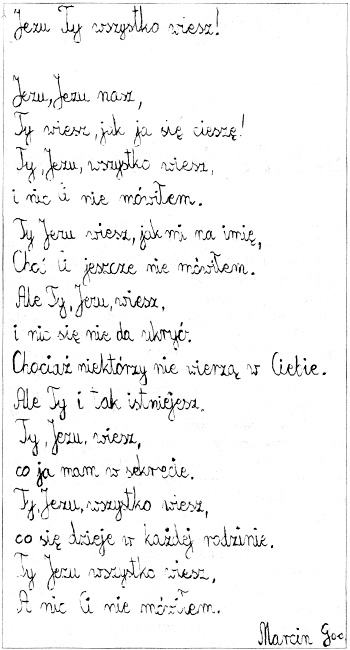 Jezu Ty wszystko wiesz!
Jezu, Jezu nasz,
Ty wiesz, jak ja się cieszę!
Ty, Jezu, wszystko wiesz,
i nic Ci nie mówiłem.
Ty Jezu wiesz, jak mi na imię,
Choć Ci jeszcze nie mówiłem.
Ale Ty, Jezu, wiesz,
i nic się nie da ukryć.
Chociaż niektórzy nie wierzą w Ciebie.
Ale Ty i tak istniejesz.
Ty, Jezu, wiesz,
co ja mam w sekrecie.
Ty, Jezu, wszystko wiesz,
co się dzieje w każdej rodzinie.
Ty Jezu wszystko wiesz,
A nic Ci nie mówiłem.
Marcin